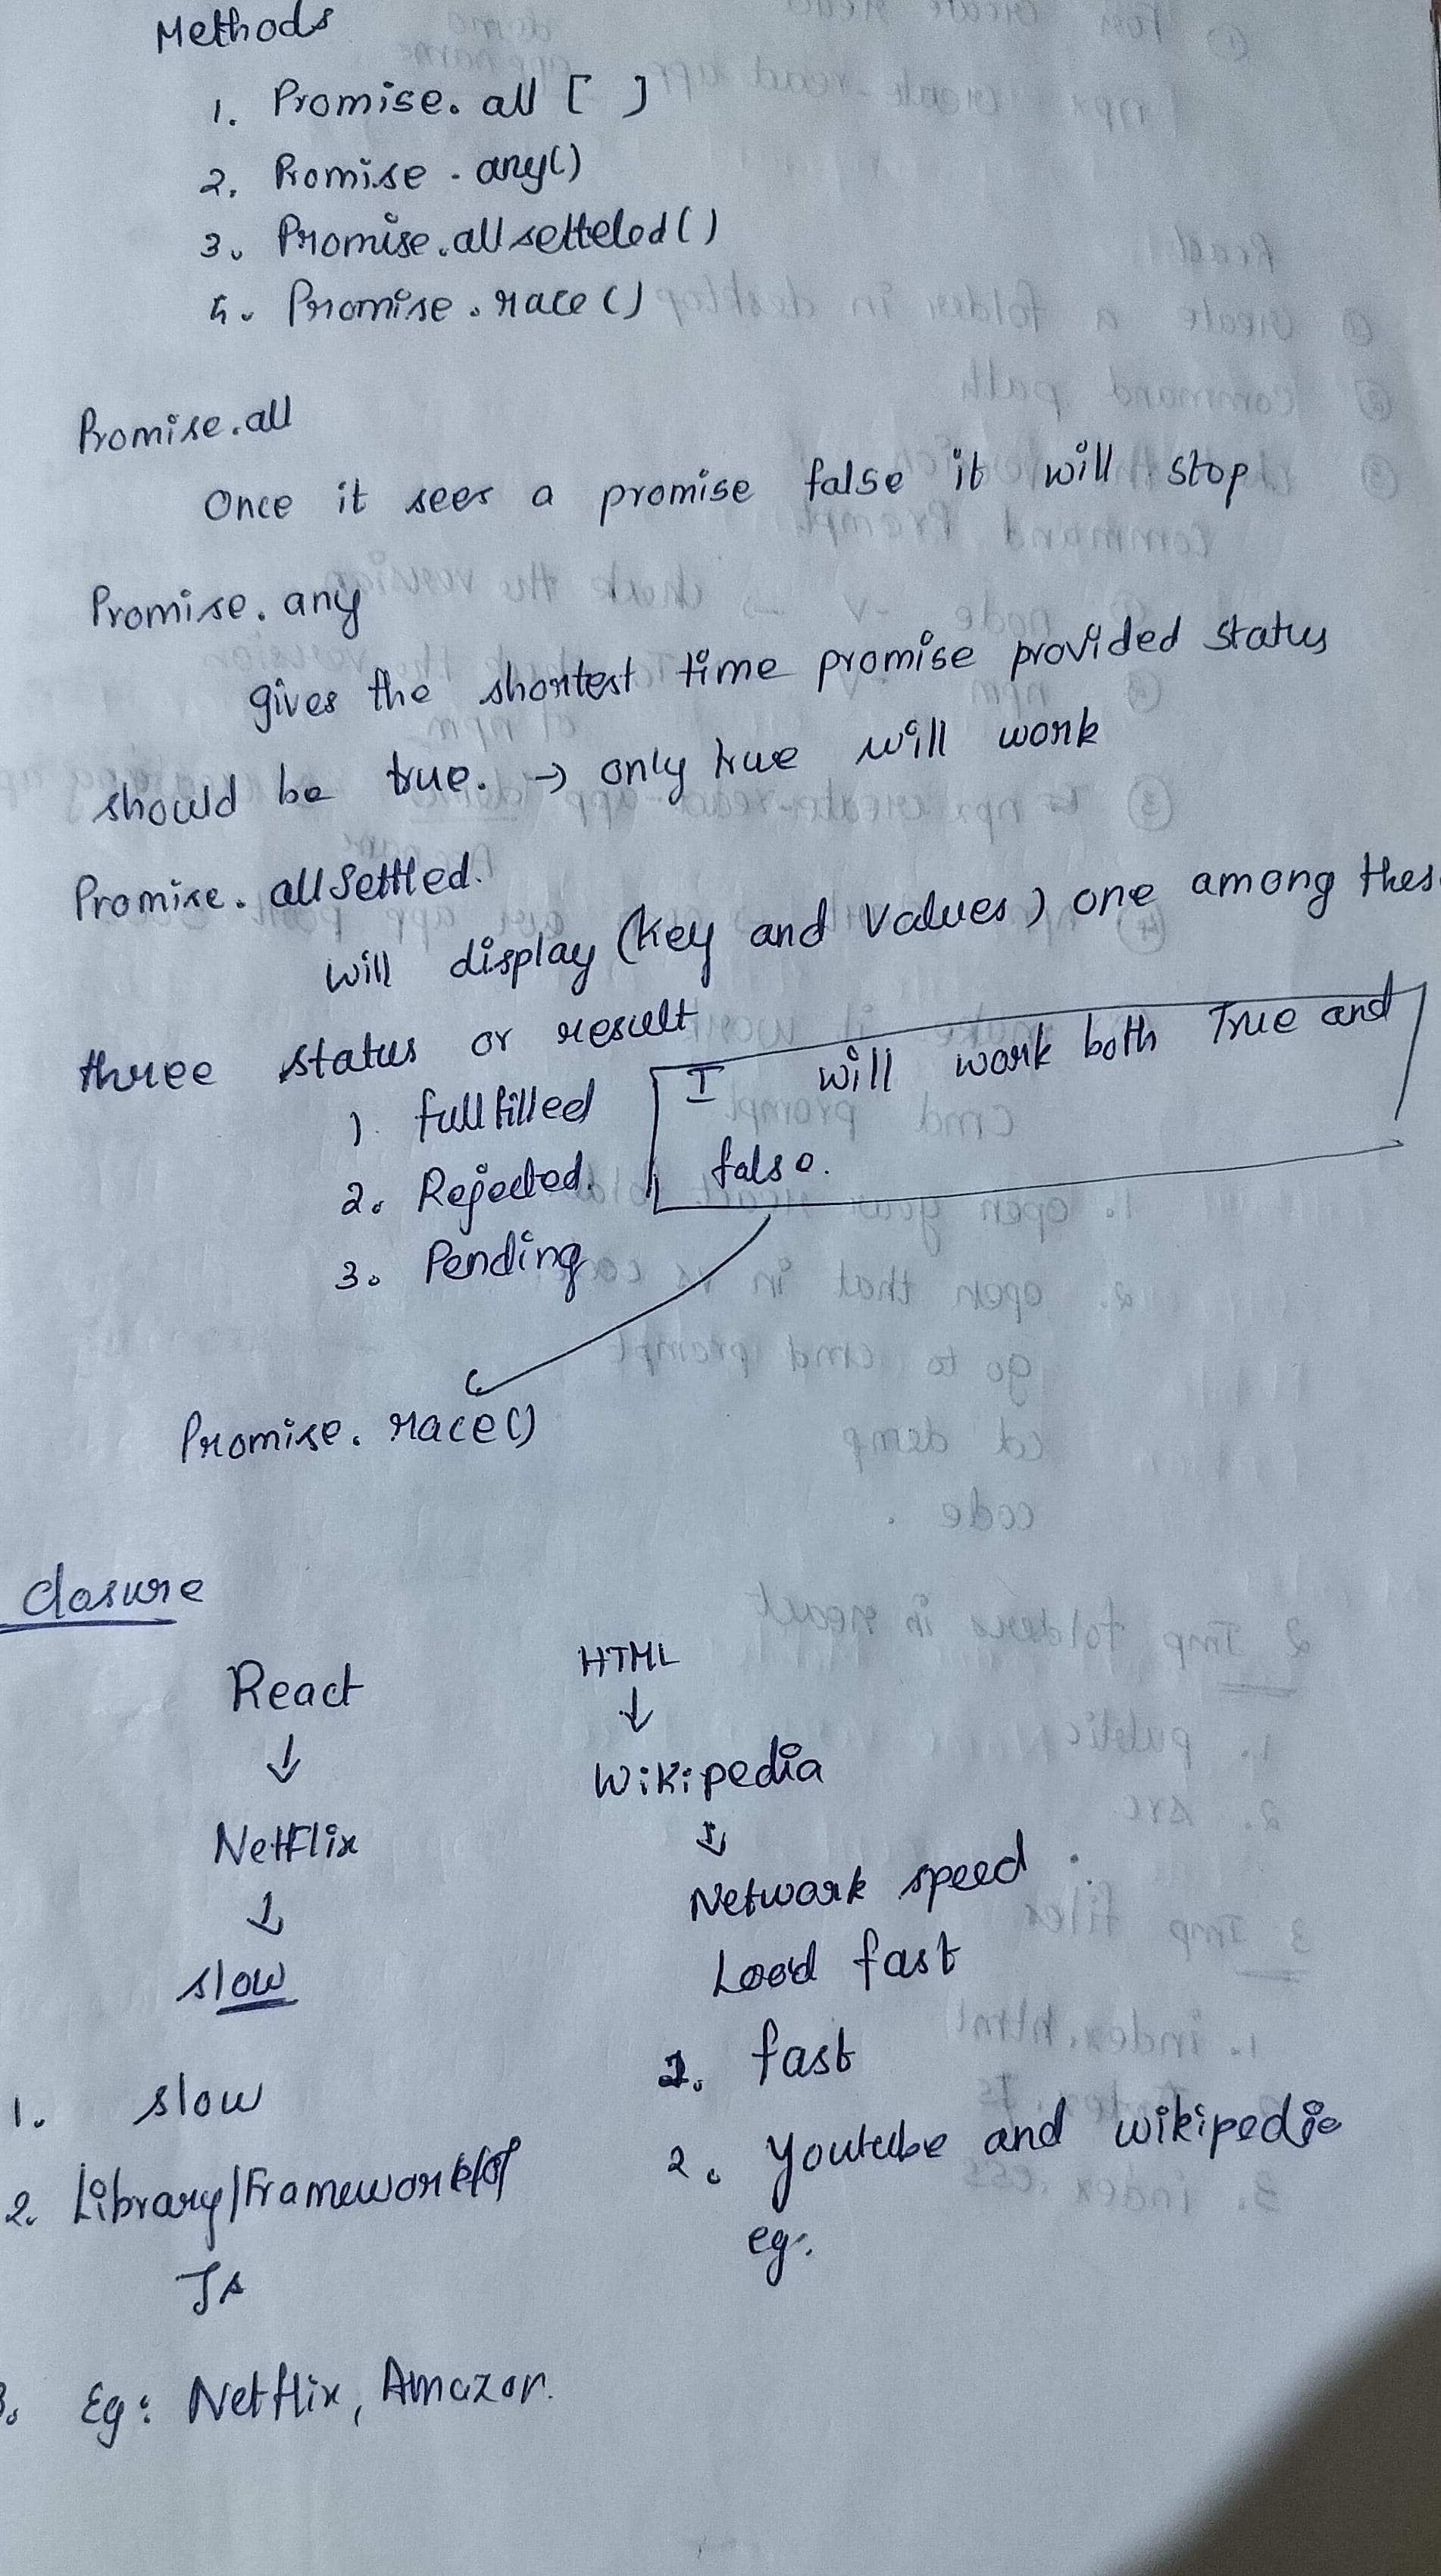 Methods
1. Promise. all [ ]
2. Promise . any()
3. Promise.allsetteled()
4. Promise . race()
Promise.all
Once it sees a promise false it will stop
Promise. any
gives the shortest time promise provided status
should be true. → only true will work
Promise. allSettled.
will display (key and values) one among thes
three status or result
1) fullfilled
2. Rejected.
3. Pending
I will work both True and
false.
Promise. race()
closure
React
↓
Netflix
↓
slow
1. slow
2. Library/Framework
JS
3. Eg: Netflix, Amazon.
HTML
↓
Wikipedia
↓
Network speed
Load fast
1. fast
2. Youtube and wikipedia
eg: